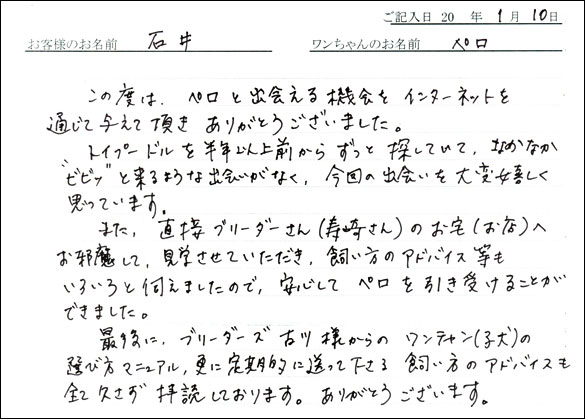 ご記入日 20 年 1月 10日
お客様のお名前 石井 ワンちゃんのお名前 ペロ
この度は、ペロと出会える機会をインターネットを
通じて与えて頂きありがとうございました。
トイプードルを半年以上前からずっと探していて、なかなか
"ビビッ"と来るような出会いがなく、今回の出会いを大変嬉しく
思っています。
また、直接ブリーダーさん(寿崎さん)のお宅(お店)へ
お邪魔して、見学させていただき、飼い方のアドバイス等も
いろいろと伺えましたので、安心してペロを引き受けることが
できました。
最後に、ブリーダーズ古川様からのワンチャン(子犬)の
選び方マニュアル,更に定期的に送って下さる飼い方のアドバイスも
全て欠さず拝読しております。ありがとうございます。